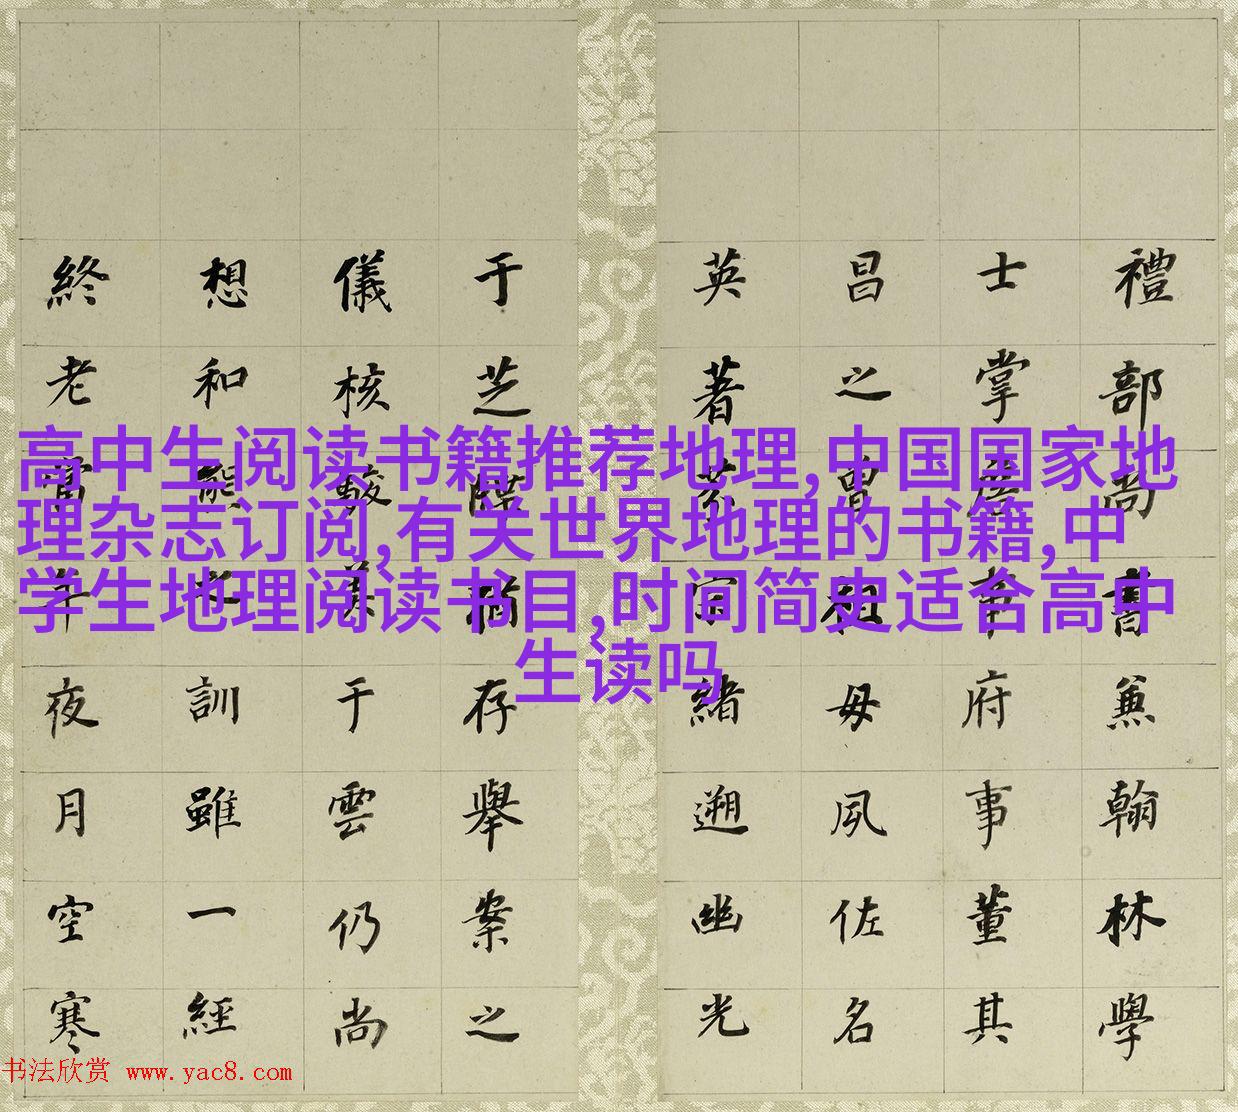 高中生阅读书籍推荐地理,中国国家地
理杂志订阅,有关世界地理的书籍,中
学生地理阅读书目,时间简史适合高中
生读吗
禮部尚書兼翰林學
士掌詹事府事董其
昌之曾祖母夙佐名
英著宗緒遡幽光
于芝猶存舉案之
儀核于雲仍尚
想和熊之訓雖一經
終老當年夜月空寒
书法欣赏 www.yac8.com